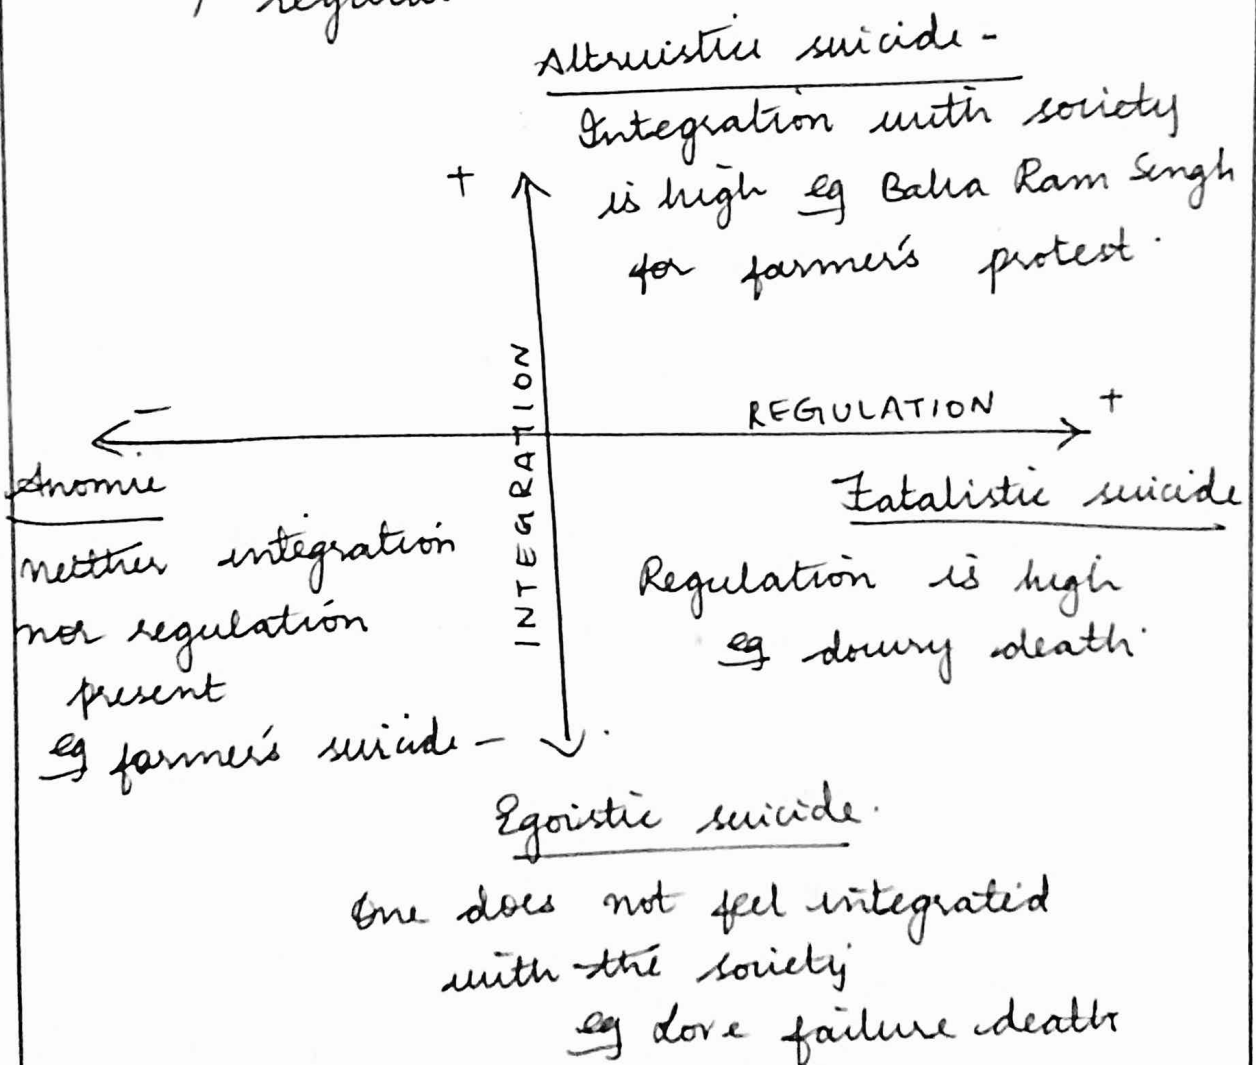 Altruistic suicide -
Integration with society
is high eg Baba Ram Singh
for farmer's protest.
+
INTEGRATION
-
REGULATION
+
Anomie
neither integration
nor regulation
present
eg farmer's suicide
-
Fatalistic suicide
Regulation is high
eg dowry death
Egoistic suicide.
One does not feel integrated
with the society
eg Love failure death